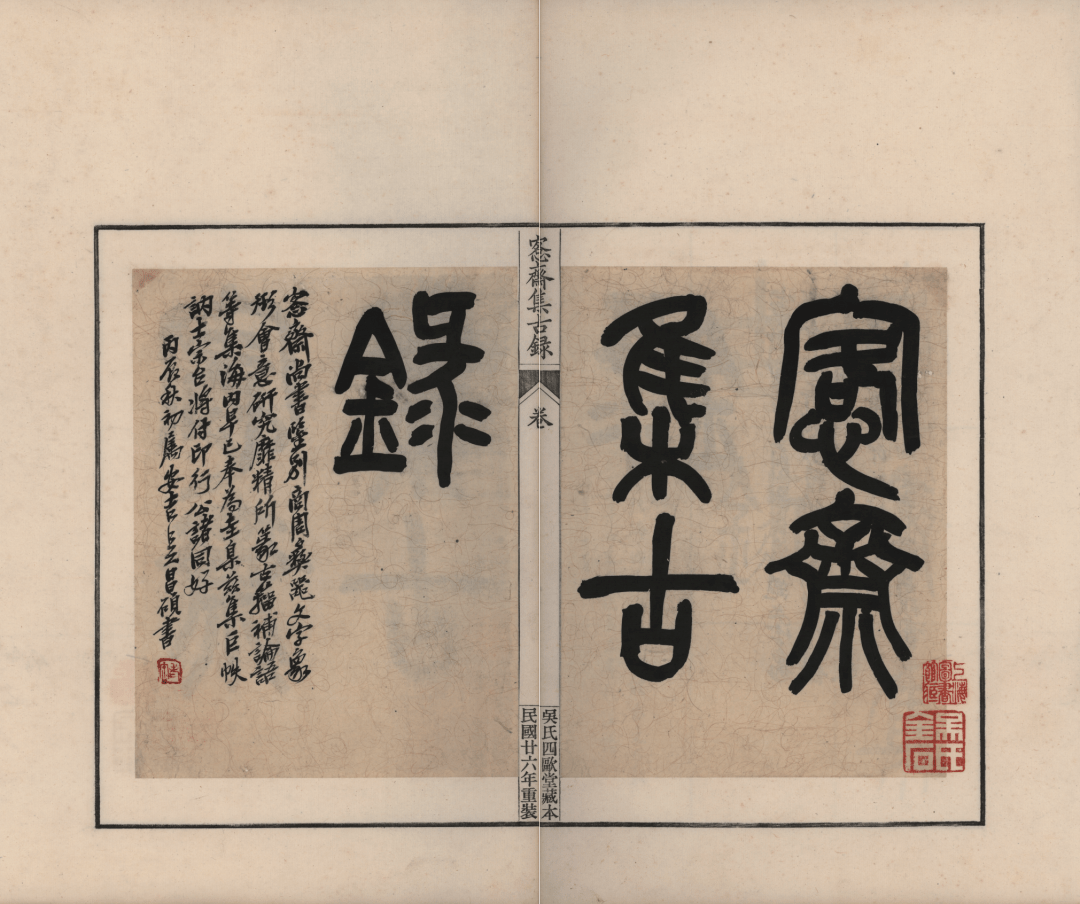 愙齋
集古
録
愙齋尚書鑒別商周彝器文字象
形會意研究靡精所篆古籀補論語
等集海内早已奉為圭臬茲集巨帙
訥士宗台將付印行公諸同好
丙辰秋初屬安吉吳昌碩書
愙齋集古録
卷
吳氏四歐堂藏本
民國廿六年重裝